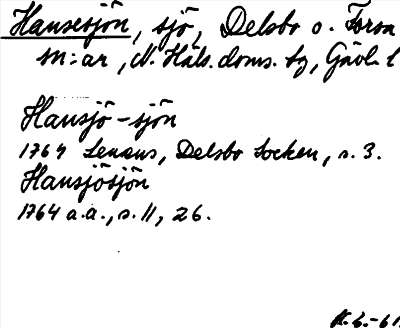 Hansesjön, sjö, Delsbo o. Forsa
sn:ar, N. Häls. doms. tg, Gävl. l
Hansjö-sjön
1764 Lenæus, Delsbo Socken, s. 3.
Hansjösjön
1764 a.a., s. 11, 26.